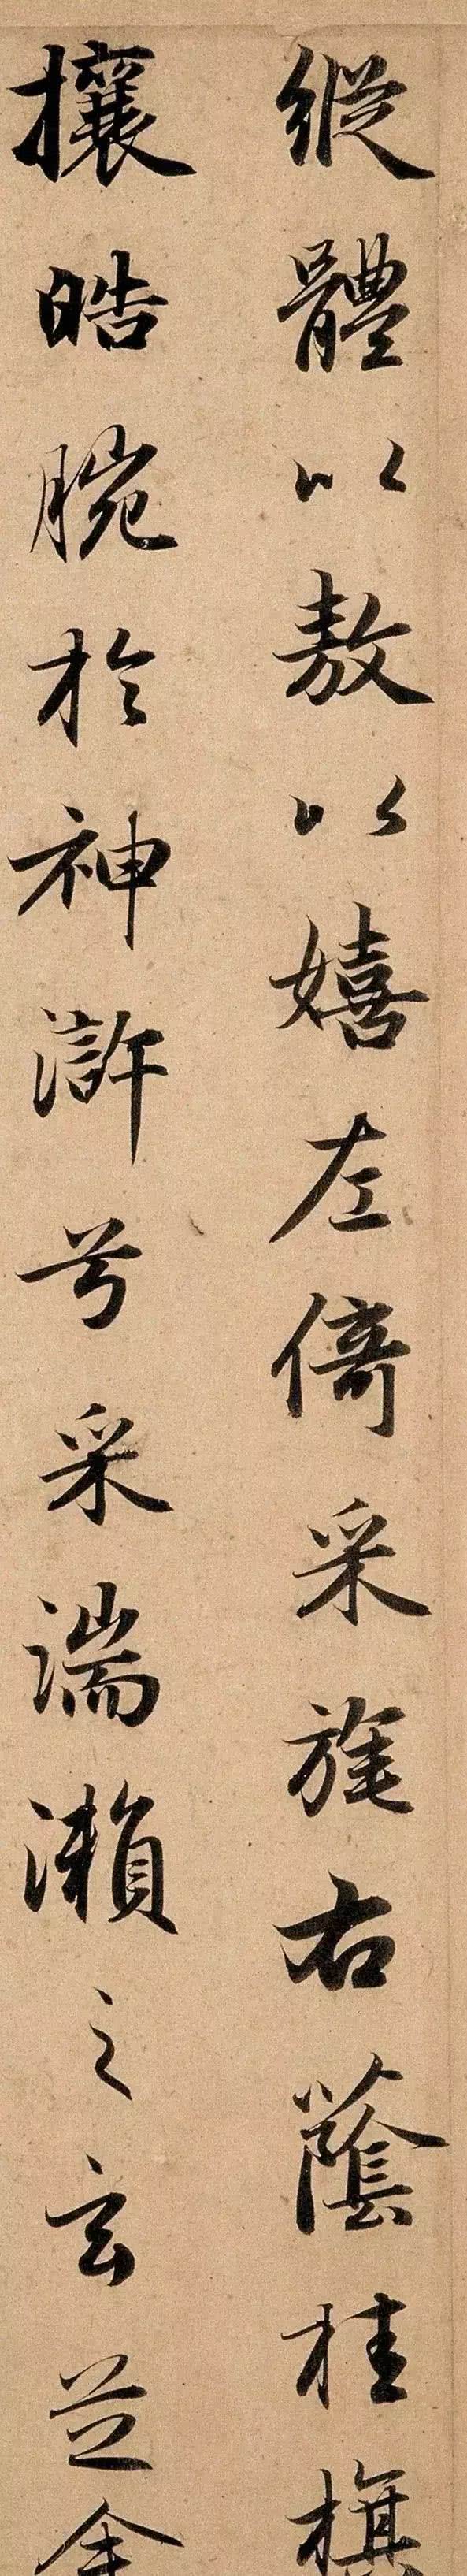 縱體以敖以嬉左倚采旄右蔭桂旗
攘皓腕於神滸兮采湍瀨之玄芝余